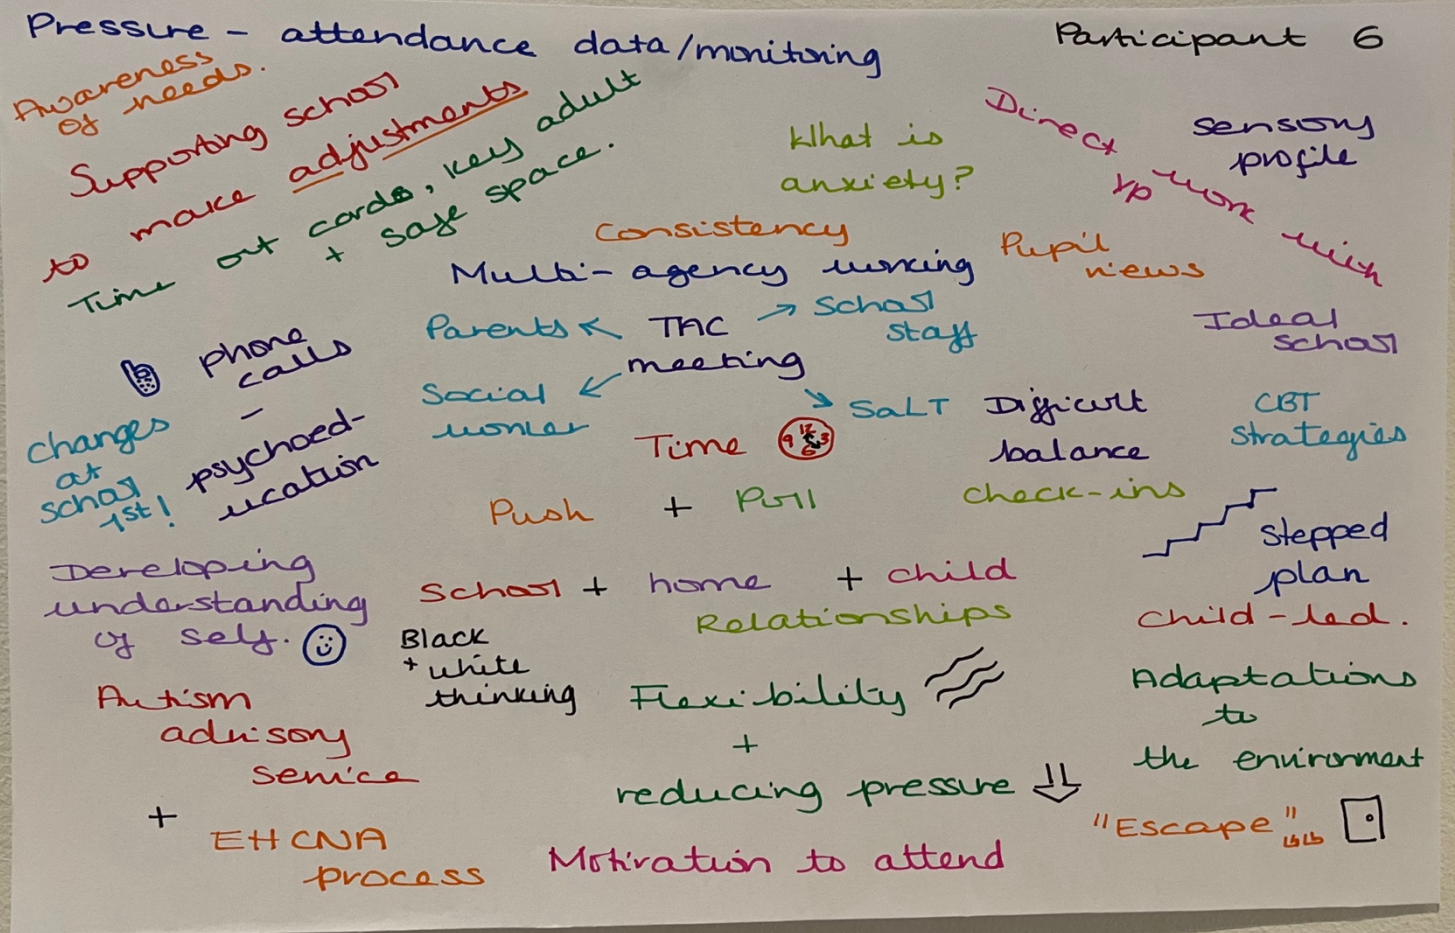 Pressure - attendance data/monitoring
Participant 6
Awareness
of needs.
Supporting school
to make adjustments
Time out cards, key adult
+ safe space.
What is
anxiety?
Direct work with
YP
sensory
profile
Consistency
Multi-agency working
Pupil
views
Parents ← TAC → School
staff
meeting
Social
worker
SaLT
Ideal
school
phone
calls
-
psychoed-
ucation
changes
at
school
1st!
Time
12
9 3
6
Difficult
balance
CBT
strategies
Push + Pull
check-ins
Stepped
plan
Developing
understanding
of self.
School + home + child
Relationships
child-led.
Black
+ white
thinking
Flexibility
+
reducing pressure
Adaptations
to
the environment
Autism
advisory
service
+
EHCNA
process
Motivation to attend
"Escape"